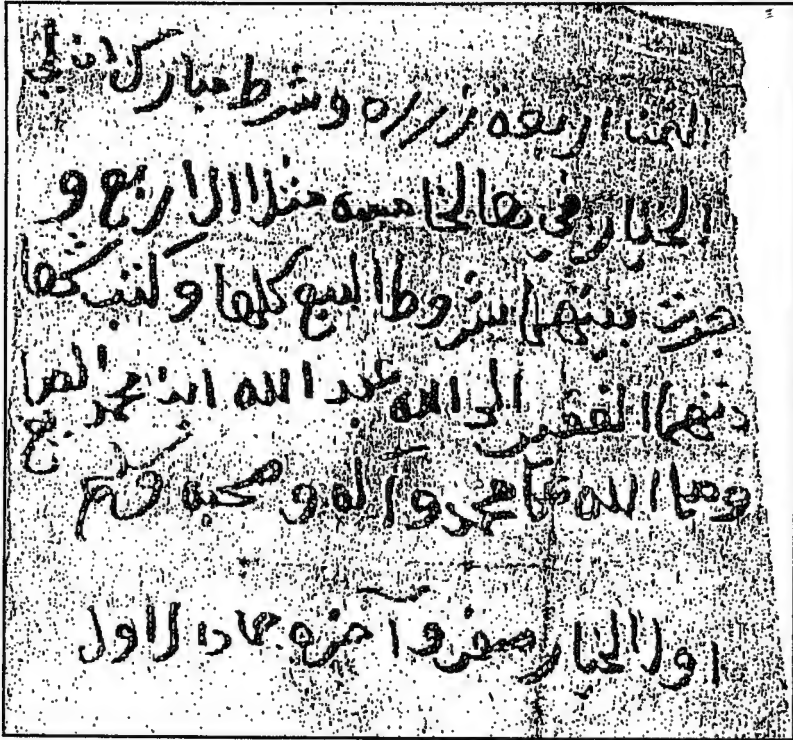 الثمن اربعة زراره وشرط مبارك ان لي
الخيار في هالخامسه مثل الاربع و
جرت بينهما شروط البيع كلها وكتب
الفقير الى الله عبد الله ابن محمد الصا
وصلى الله على محمد وآله وصحبه وسلم
اول الخيار صفر وآخره جماد الاول